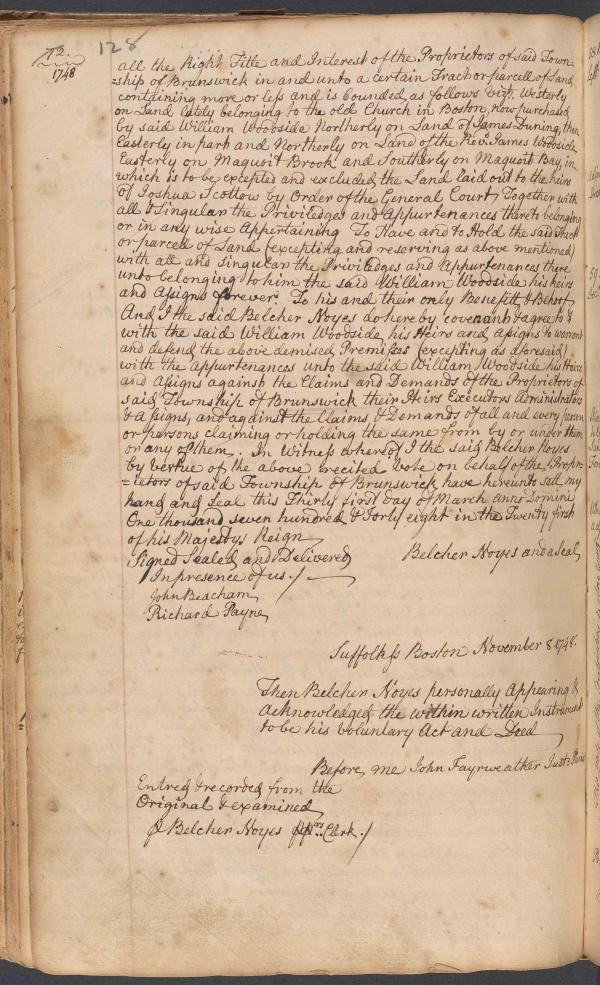 72.
128
1748
all the Right Title and Interest of the Proprietors of said Town=
=ship of Brunswick in and unto a certain Tract or parcell of Land
containing more or less and is bounded as follows vizt. Westerly
on Land lately belonging to the old Church in Boston, now purchased
by said William Woodside Northerly on Land of James Duning, then
Easterly in part and Northerly on Land of the Revd. James Woodside
Easterly on Maquoit Brook and Southerly on Maquoit Bay, in
which is to be excepted and excluded the Land laid out to the heirs
of Joshua Scottow by Order of the General Court, Together with
all & Singular the Priviledges and Appurtenances thereto belonging
or in any wise Appertaining To Have and to Hold the said Tract
or parcell of Land (excepting and reserving as above mentioned)
with all and singular the Priviledges and Appurtenances there
unto belonging to him the said William Woodside his heirs
and Assigns forever. To his and their only Benefitt & Behoof
And I the said Belcher Noyes do hereby covenant & agree to &
with the said William Woodside his Heirs and Assigns to warrant
and defend the above demised Premisses (excepting as aforesaid)
with the appurtenances unto the said William Woodside his Heirs
and Assigns against the Claims and Demands of the Proprietors of
said Township of Brunswick their Heirs Executors Administrators
& Assigns, and against the Claims & Demands of all and every person
or persons claiming or holding the same from by or under them
or any of them. In Witness whereof I the said Belcher Noyes
by vertue of the above recited vote on behalf of the Propri=
=ietors of said Township of Brunswick have hereunto sett my
hand and Seal this Thirty first day of March anno Domini
One thousand seven hundred & Forty eight in the Twenty first
of his Majestys Reign
Signed Sealed and Delivered Belcher Noyes and a Seal
In presence of us
John Beacham
Richard Payne
Suffolk ss Boston November 8 1748.
Then Belcher Noyes personally Appearing &
acknowledged the within written Instrument
to be his voluntary Act and Deed
Before me John Fayrweather Just: Pacis
Entred & recorded from the
Original & examined
Belcher Noyes Clerk